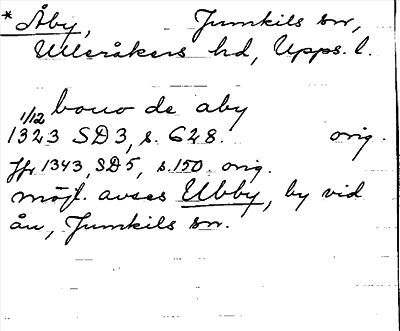 * Åby, Jumkils sn,
Ulleråkers hd, Upps. l.
1/12 bouo de aby
1323 SD 3, s. 628. orig.
Jfr 1343, SD 5, s. 150 orig.
möjl. avses Ubby, by vid
ån, Jumkils sn.